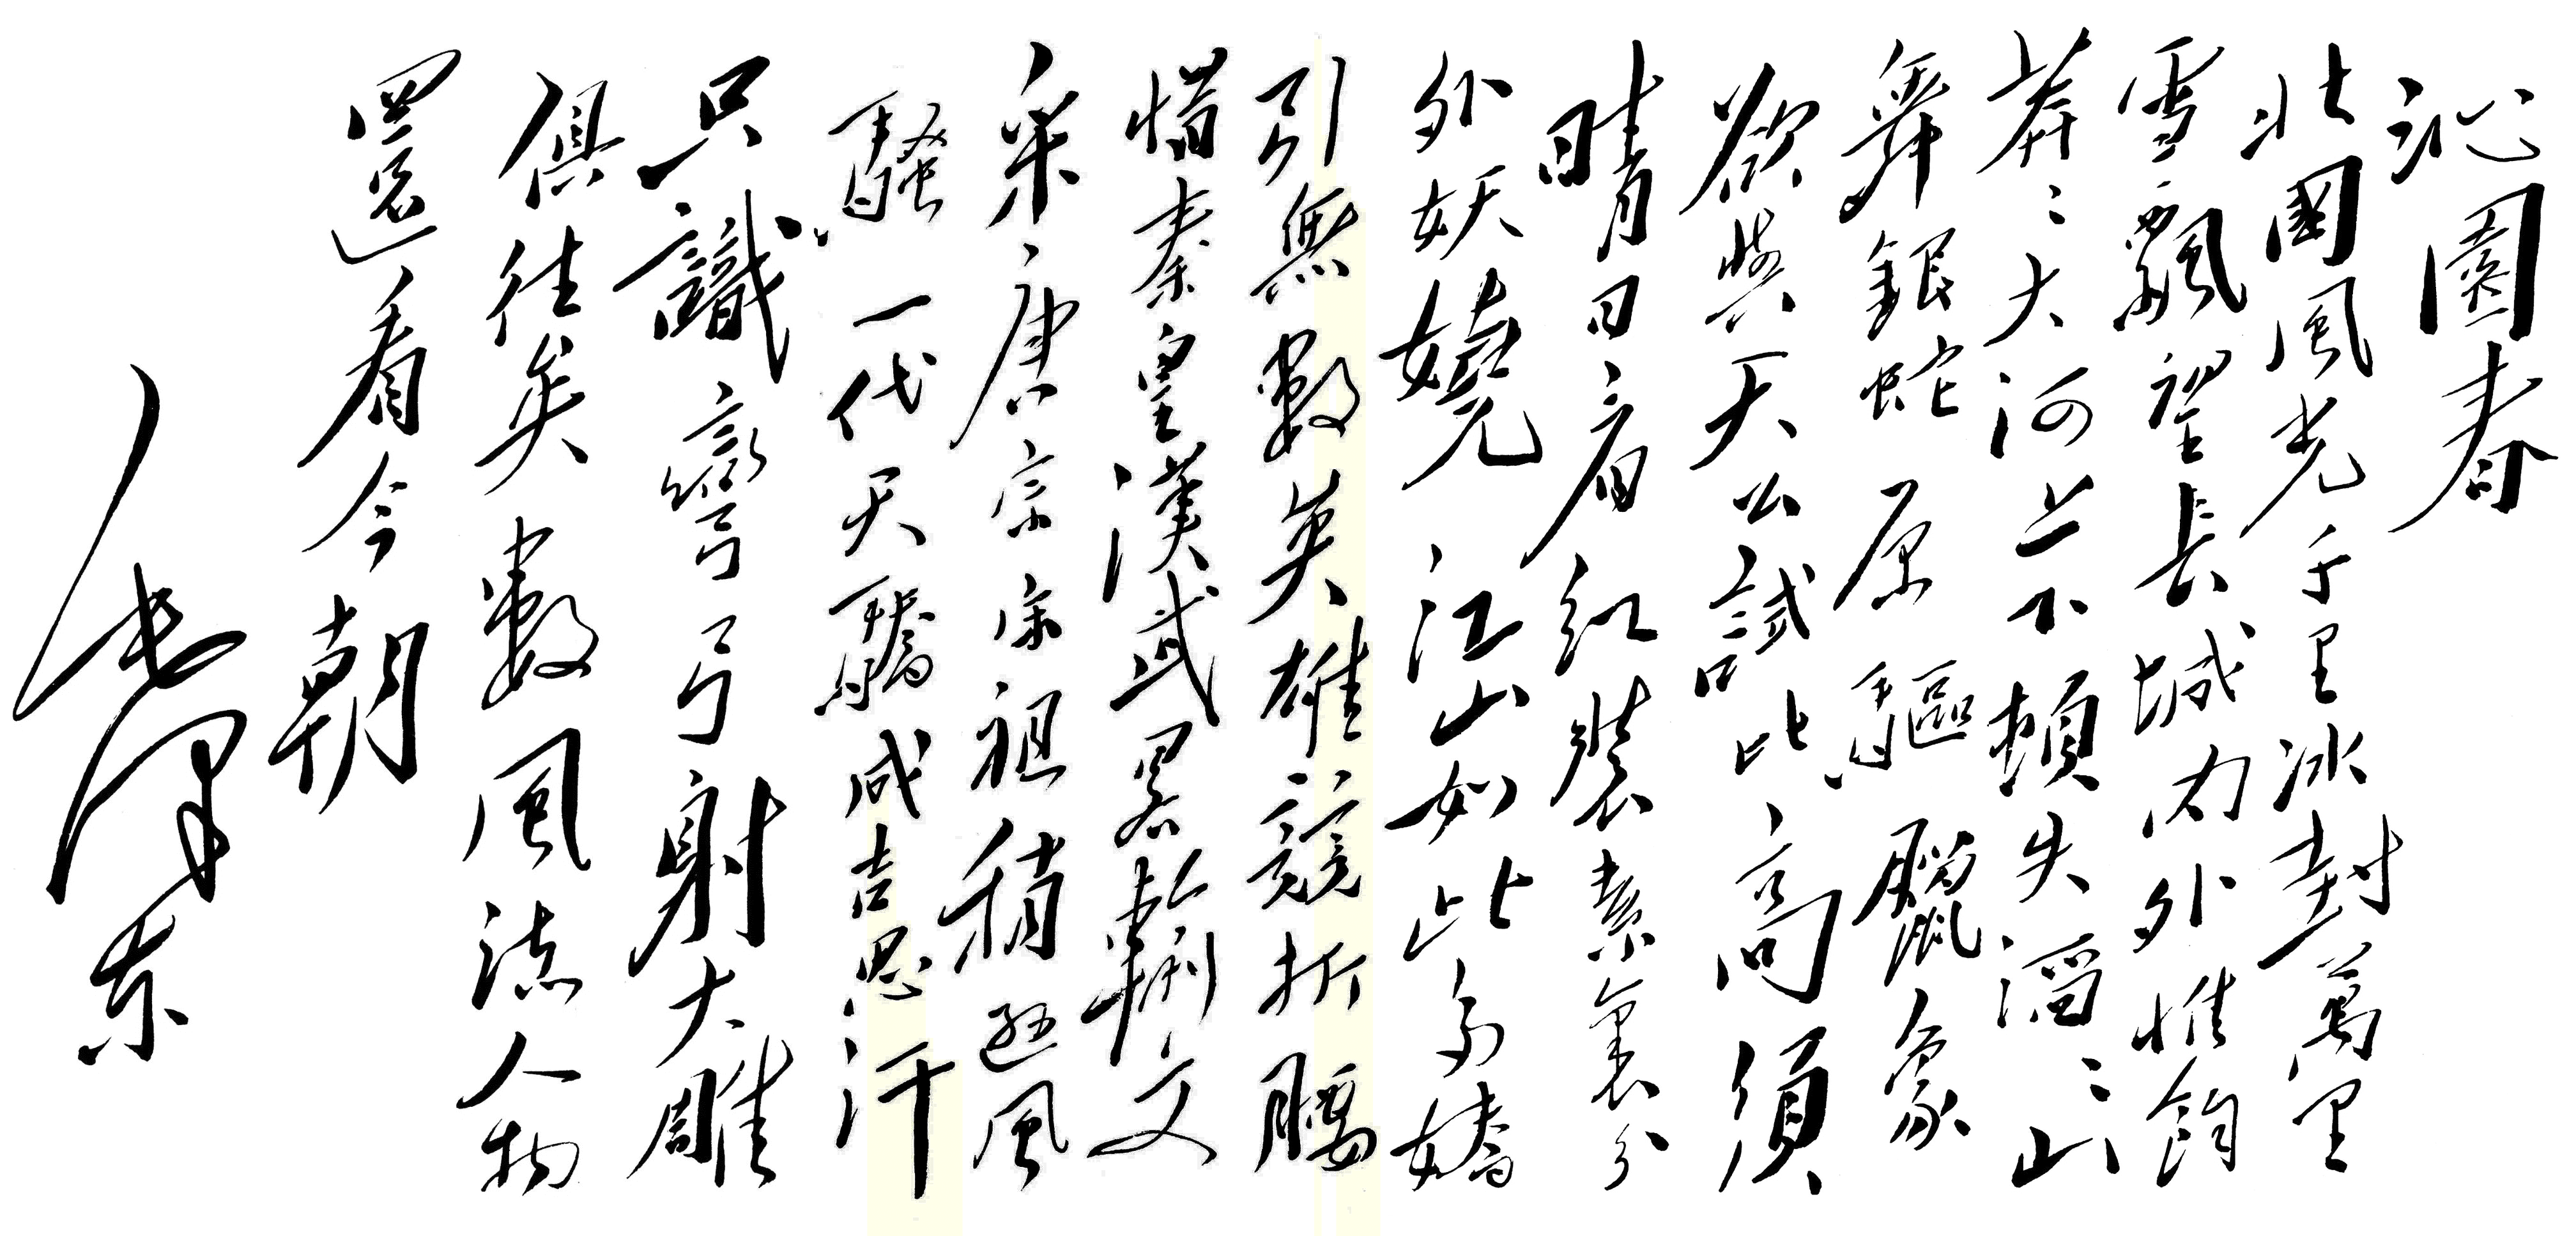 沁園春
北國風光千里冰封萬里
雪飄望長城內外惟餘
莽〻大河上下頓失滔〻山
舞銀蛇原驅臘象
欲與天公試比高須
晴日看紅裝素裹分
外妖嬈江山如此多嬌
引無數英雄競折腰
惜秦皇漢武畧輸文
采唐宗宋祖稍遜風
騷一代天驕成吉思汗
只識彎弓射大雕
俱往矣數風流人物
還看今朝
毛澤東